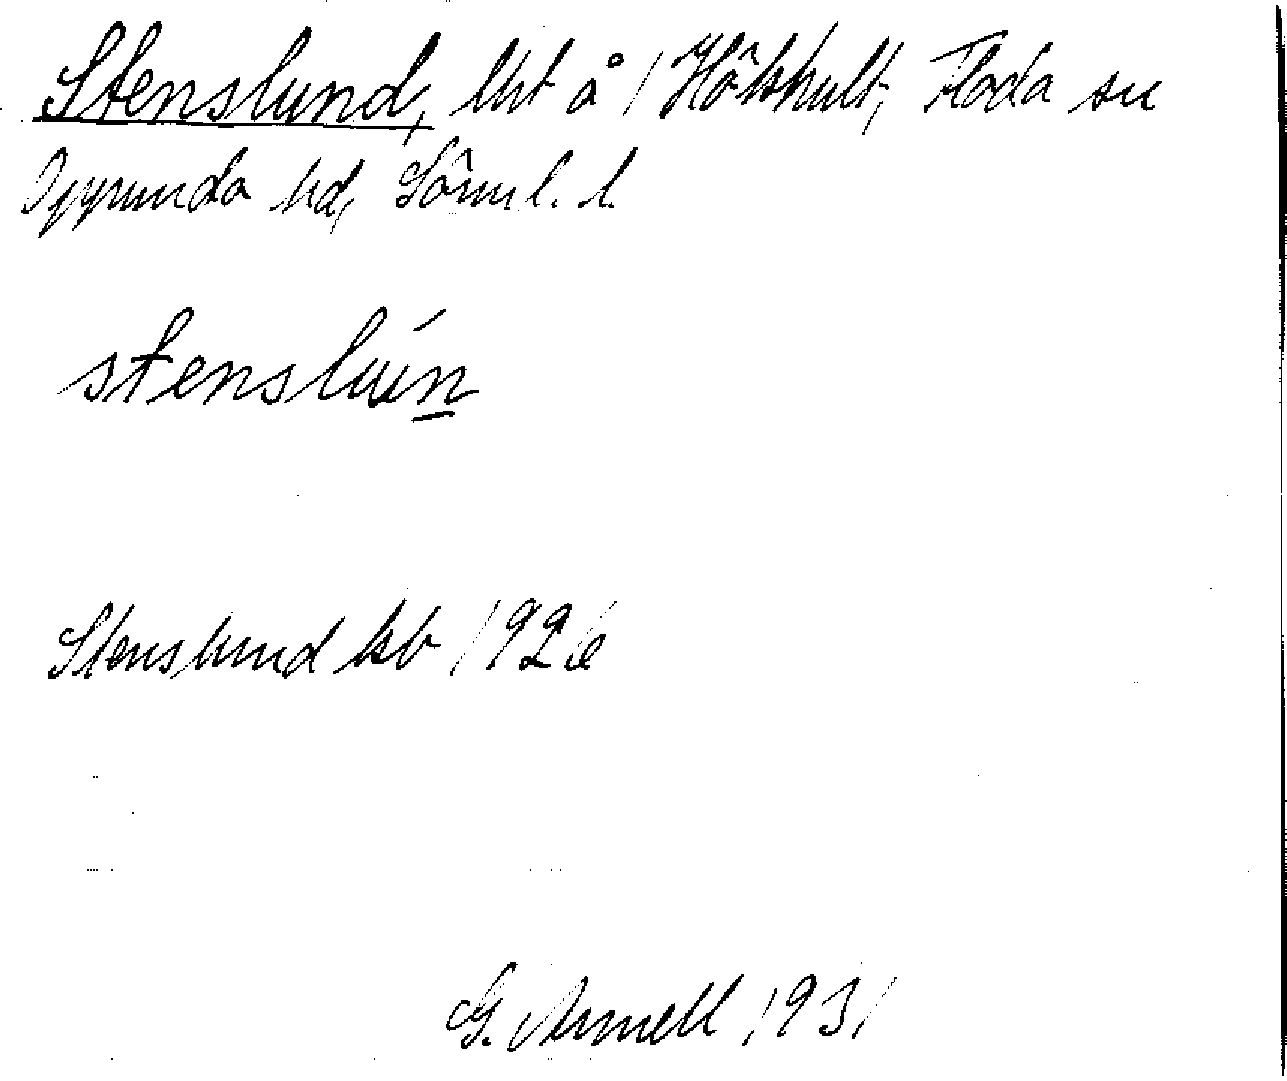 Stenslund, lht å 1 Hökhult, Floda sn
Oppunda hd, Sörml. l.
stensluń
Stenslund kb 1926
G. Armell 1931